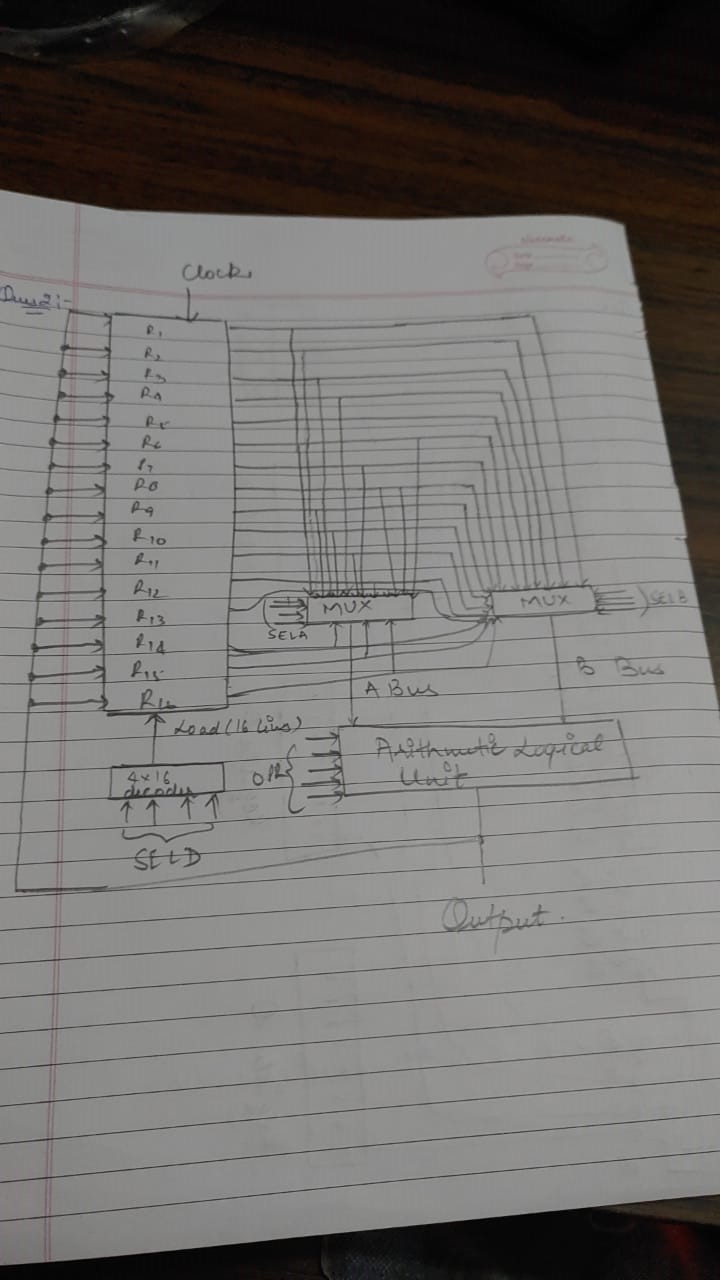 Clock
Ans2:-
R1
R2
R3
R4
R5
R6
R7
R8
R9
R10
R11
R12
R13
R14
R15
R16
MUX
SELA
MUX
SELB
A Bus
B Bus
Load (16 lins)
4x16
decoder
SELD
OPR
Arithmetic Logical
Unit
Output.